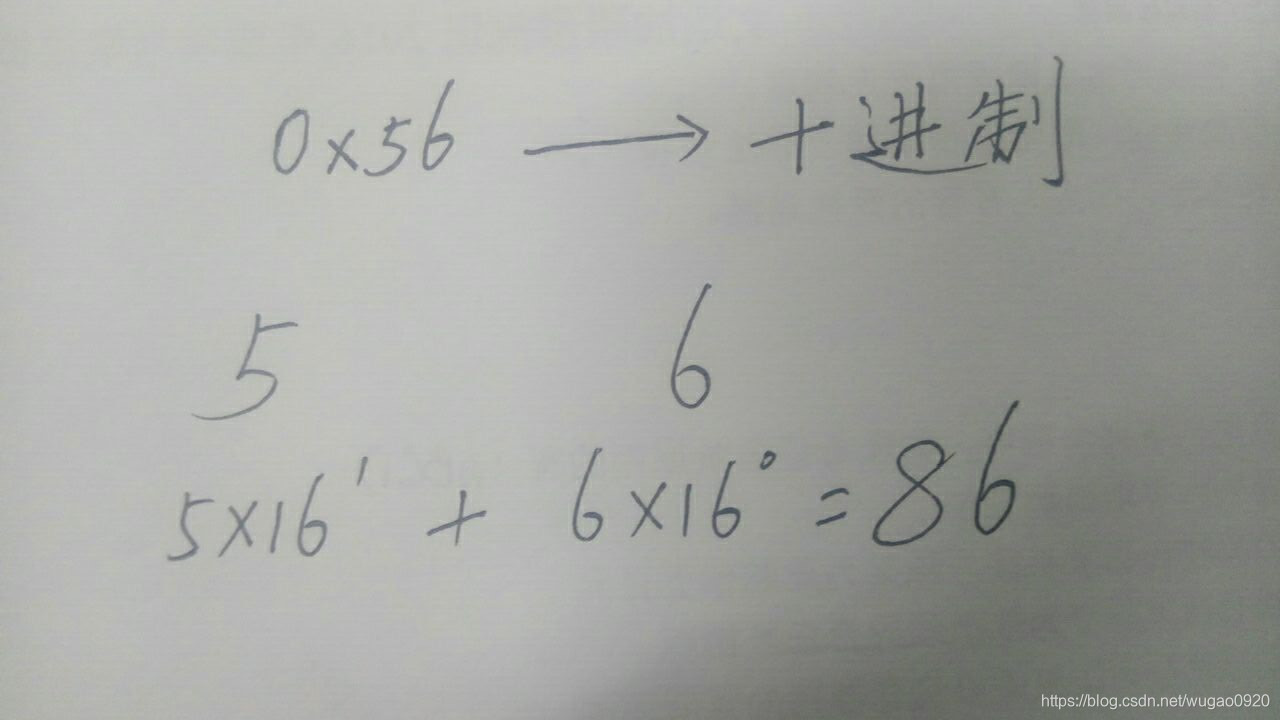 0x56 → 十进制
5 6
5×16¹ + 6×16⁰ = 86
https://blog.csdn.net/wugao0920